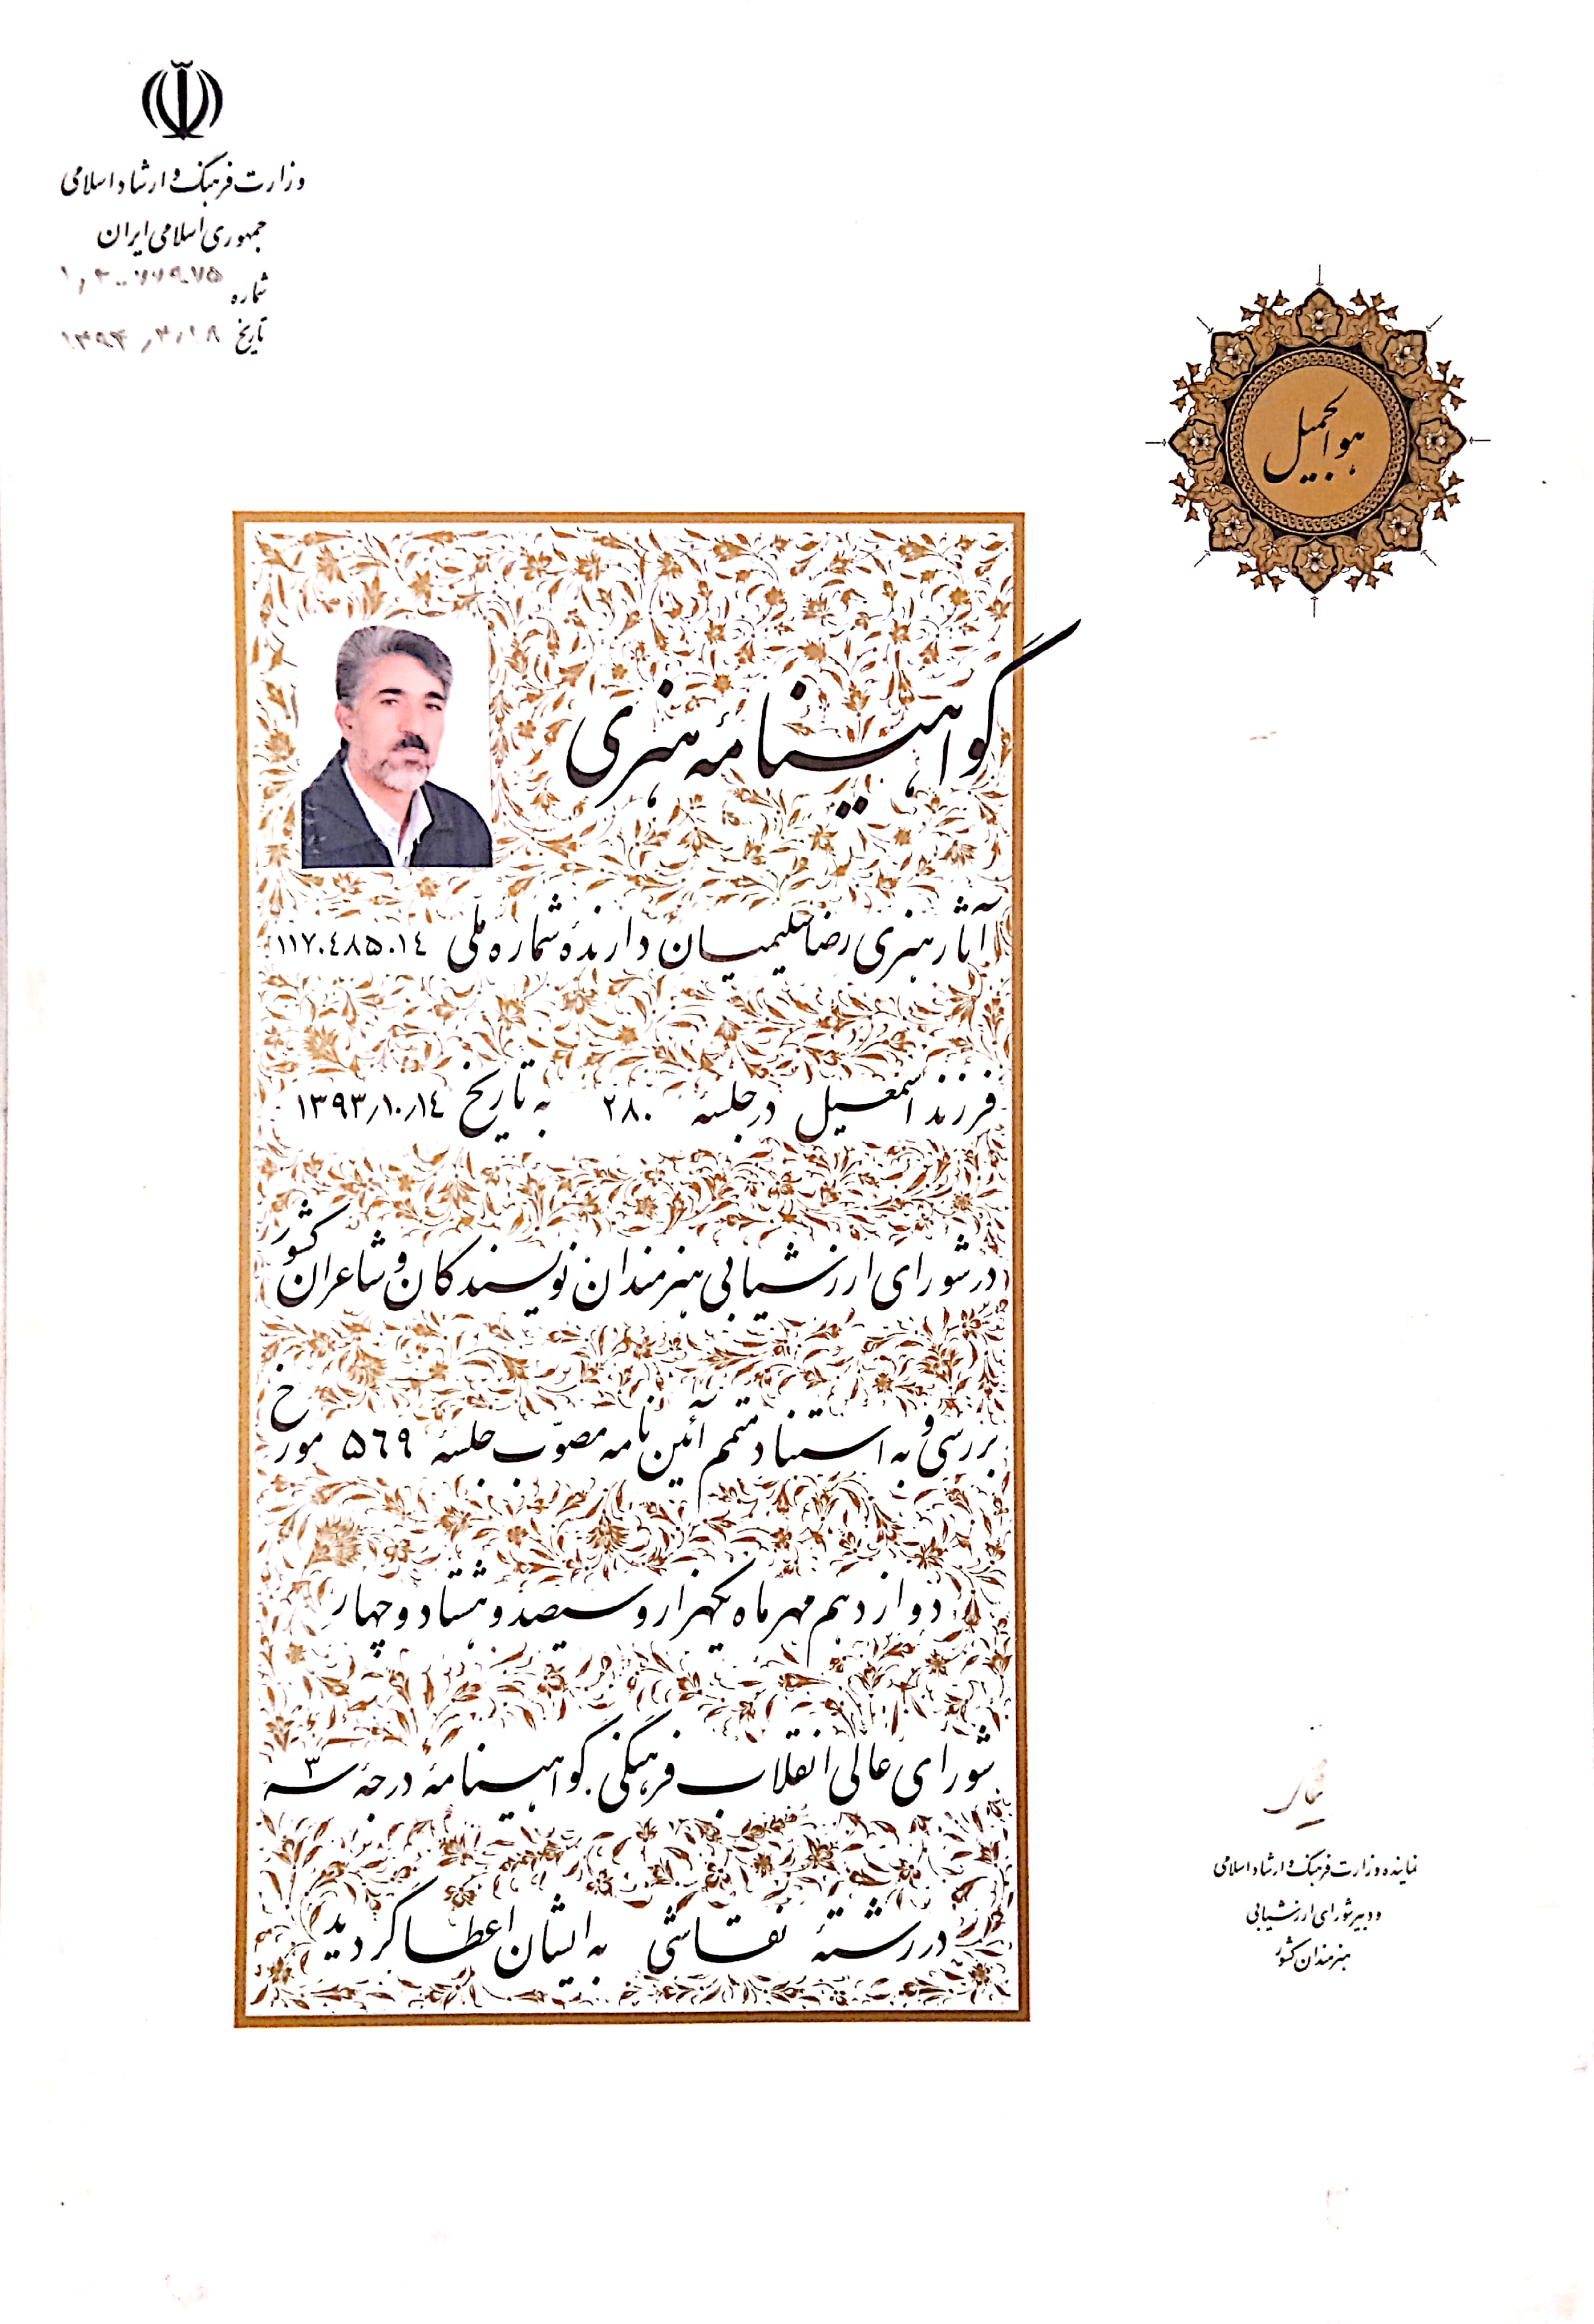 وزارت فرهنگ و ارشاد اسلامی
جمهوری اسلامی ایران
شماره
تاریخ
هو الجمیل
گواهینامهٔ هنری
آثار هنری رضا سلیمیان دارندهٔ شماره ملی ۱۱۷۰٤۸۵۰۱٤
فرزند اسمعیل در جلسهٔ ۲۸۰ به تاریخ ۱۳۹۳/۱۰/۱٤
در شورای ارزشیابی هنرمندان نویسندگان و شاعران کشور
بررسی و به استناد متمم آئین نامه مصوّب جلسهٔ ۵٦۹ مورخ
دوازدهم مهرماه یکهزار و سیصد و هشتاد و چهار
شورای عالی انقلاب فرهنگی گواهینامهٔ درجهٔ سه ۳
در رشتهٔ نقاشی به ایشان اعطا گردید
نماینده وزارت فرهنگ و ارشاد اسلامی
و دبیر شورای ارزشیابی
هنرمندان کشور